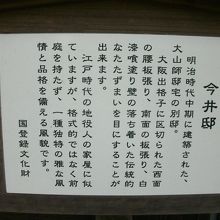 今井邸
明治時代中期に建築された、
大山師邸宅の別邸。
大阪出格子に区切られた西面
の腰板張り、南面の板張り、白
漆喰塗り壁の落ち着いた伝統的
なたたずまいを目にすることが
出来ます。
江戸時代の地役人の家屋に似
ていますが、格式的ではなく前
庭を持たず、一種独特の雅な風
情と品格を備える風貌です。
国登録文化財